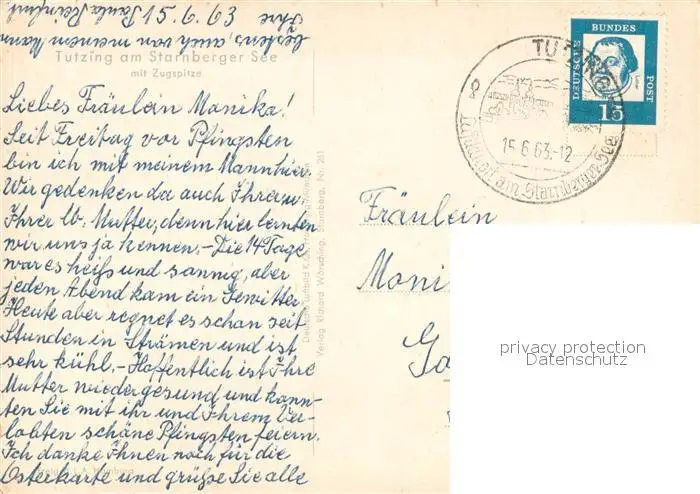 Tutzing am Starnberger See
mit Zugspitze
Liebes Fräulein Monika!
Seit Freitag vor Pfingsten
bin ich mit meinem Mann hier.
Wir gedenken da auch Ihrer u.
Ihrer lb. Mutter, denn hier lernten
wir uns ja kennen. – Die 14 Tage
war es heiß und sonnig, aber
jeden Abend kam ein Gewitter.
Heute aber regnet es schon seit
Stunden in Strömen und ist
sehr kühl. – Hoffentlich ist Ihre
Mutter wieder gesund und konn-
ten Sie mit ihr und Ihrem Ver-
lobten schöne Pfingsten feiern.
Ich danke Ihnen noch für die
Osterkarte und grüße Sie alle
bestens, auch von meinem Mann
Ihre Paula
15.6.63
Verlag Richard Wörsching, Starnberg, Nr. 261
TUTZING
15.6.63.-12
am Starnberger See
DEUTSCHE
BUNDES
POST
15
Fräulein
Moni
Ga
privacy protection
Datenschutz